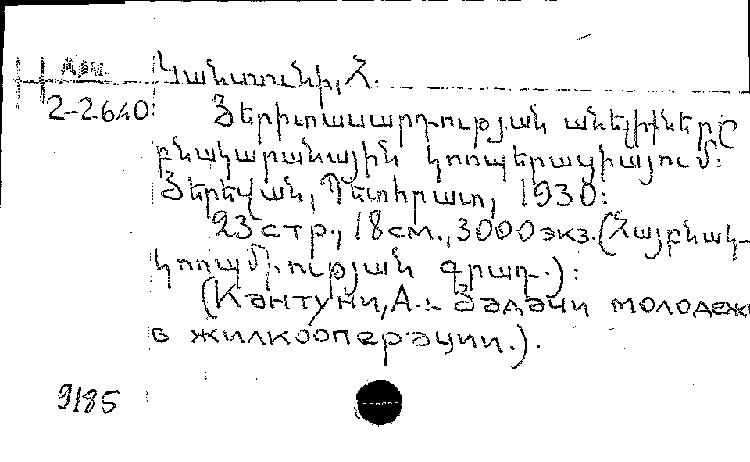 Արм.
Կանտունի, Հ.
2-2640
Յերիտասարդության անելիքները
բնակարանային կոոպերացիայում:
Յերեվան, Պետհրատ, 1930:
23 стр., 18 см., 3000 экз. (Հայբնակ-
կոոպմիության գրադ.):
(Кантуни, А.: Задачи молодежи
в жилкооперации.).
9185